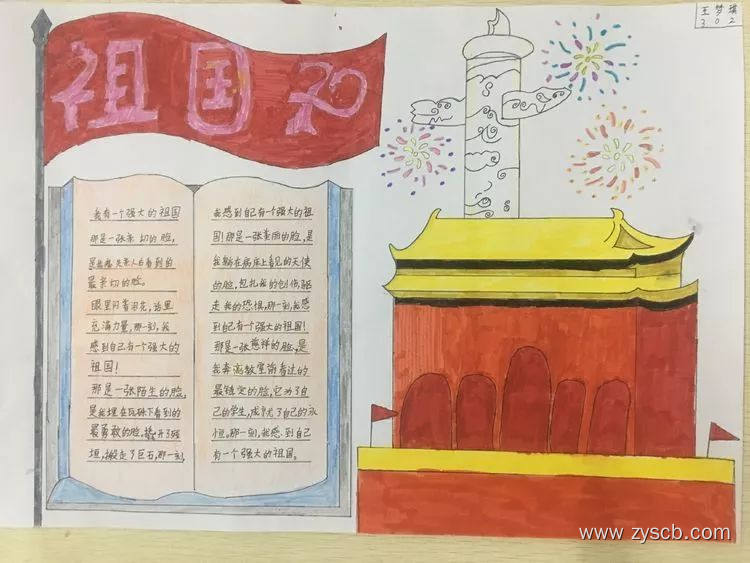 王梦琪
302
祖国70
我有一个强大的祖国
那是一张亲切的脸,
最亲切的脸。
眼里闪着泪花,话里
充满力量,那一刻,我
感到自己有一个强大的
祖国!
那是一张陌生的脸,
是我埋在瓦砾下看到的
最勇敢的脸,
垣,搬走了巨石,那一刻,
我感到自己有一个强大的祖
国!那是一张美丽的脸,是
我躺在病床上看见的天使
的脸,包扎我的创伤,驱
走我的恐惧,那一刻,我感
到自己有一个强大的祖国!
那是一张慈祥的脸,是
我奔教室前看过的
最镇定的脸,它为了自
己的学生,成了自己的永
恒。那一刻,我感到自己
有一个强大的祖国。
www.zyscb.com